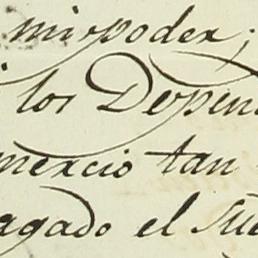 mi poder;
los Depen
mercio tan
agado el Sue